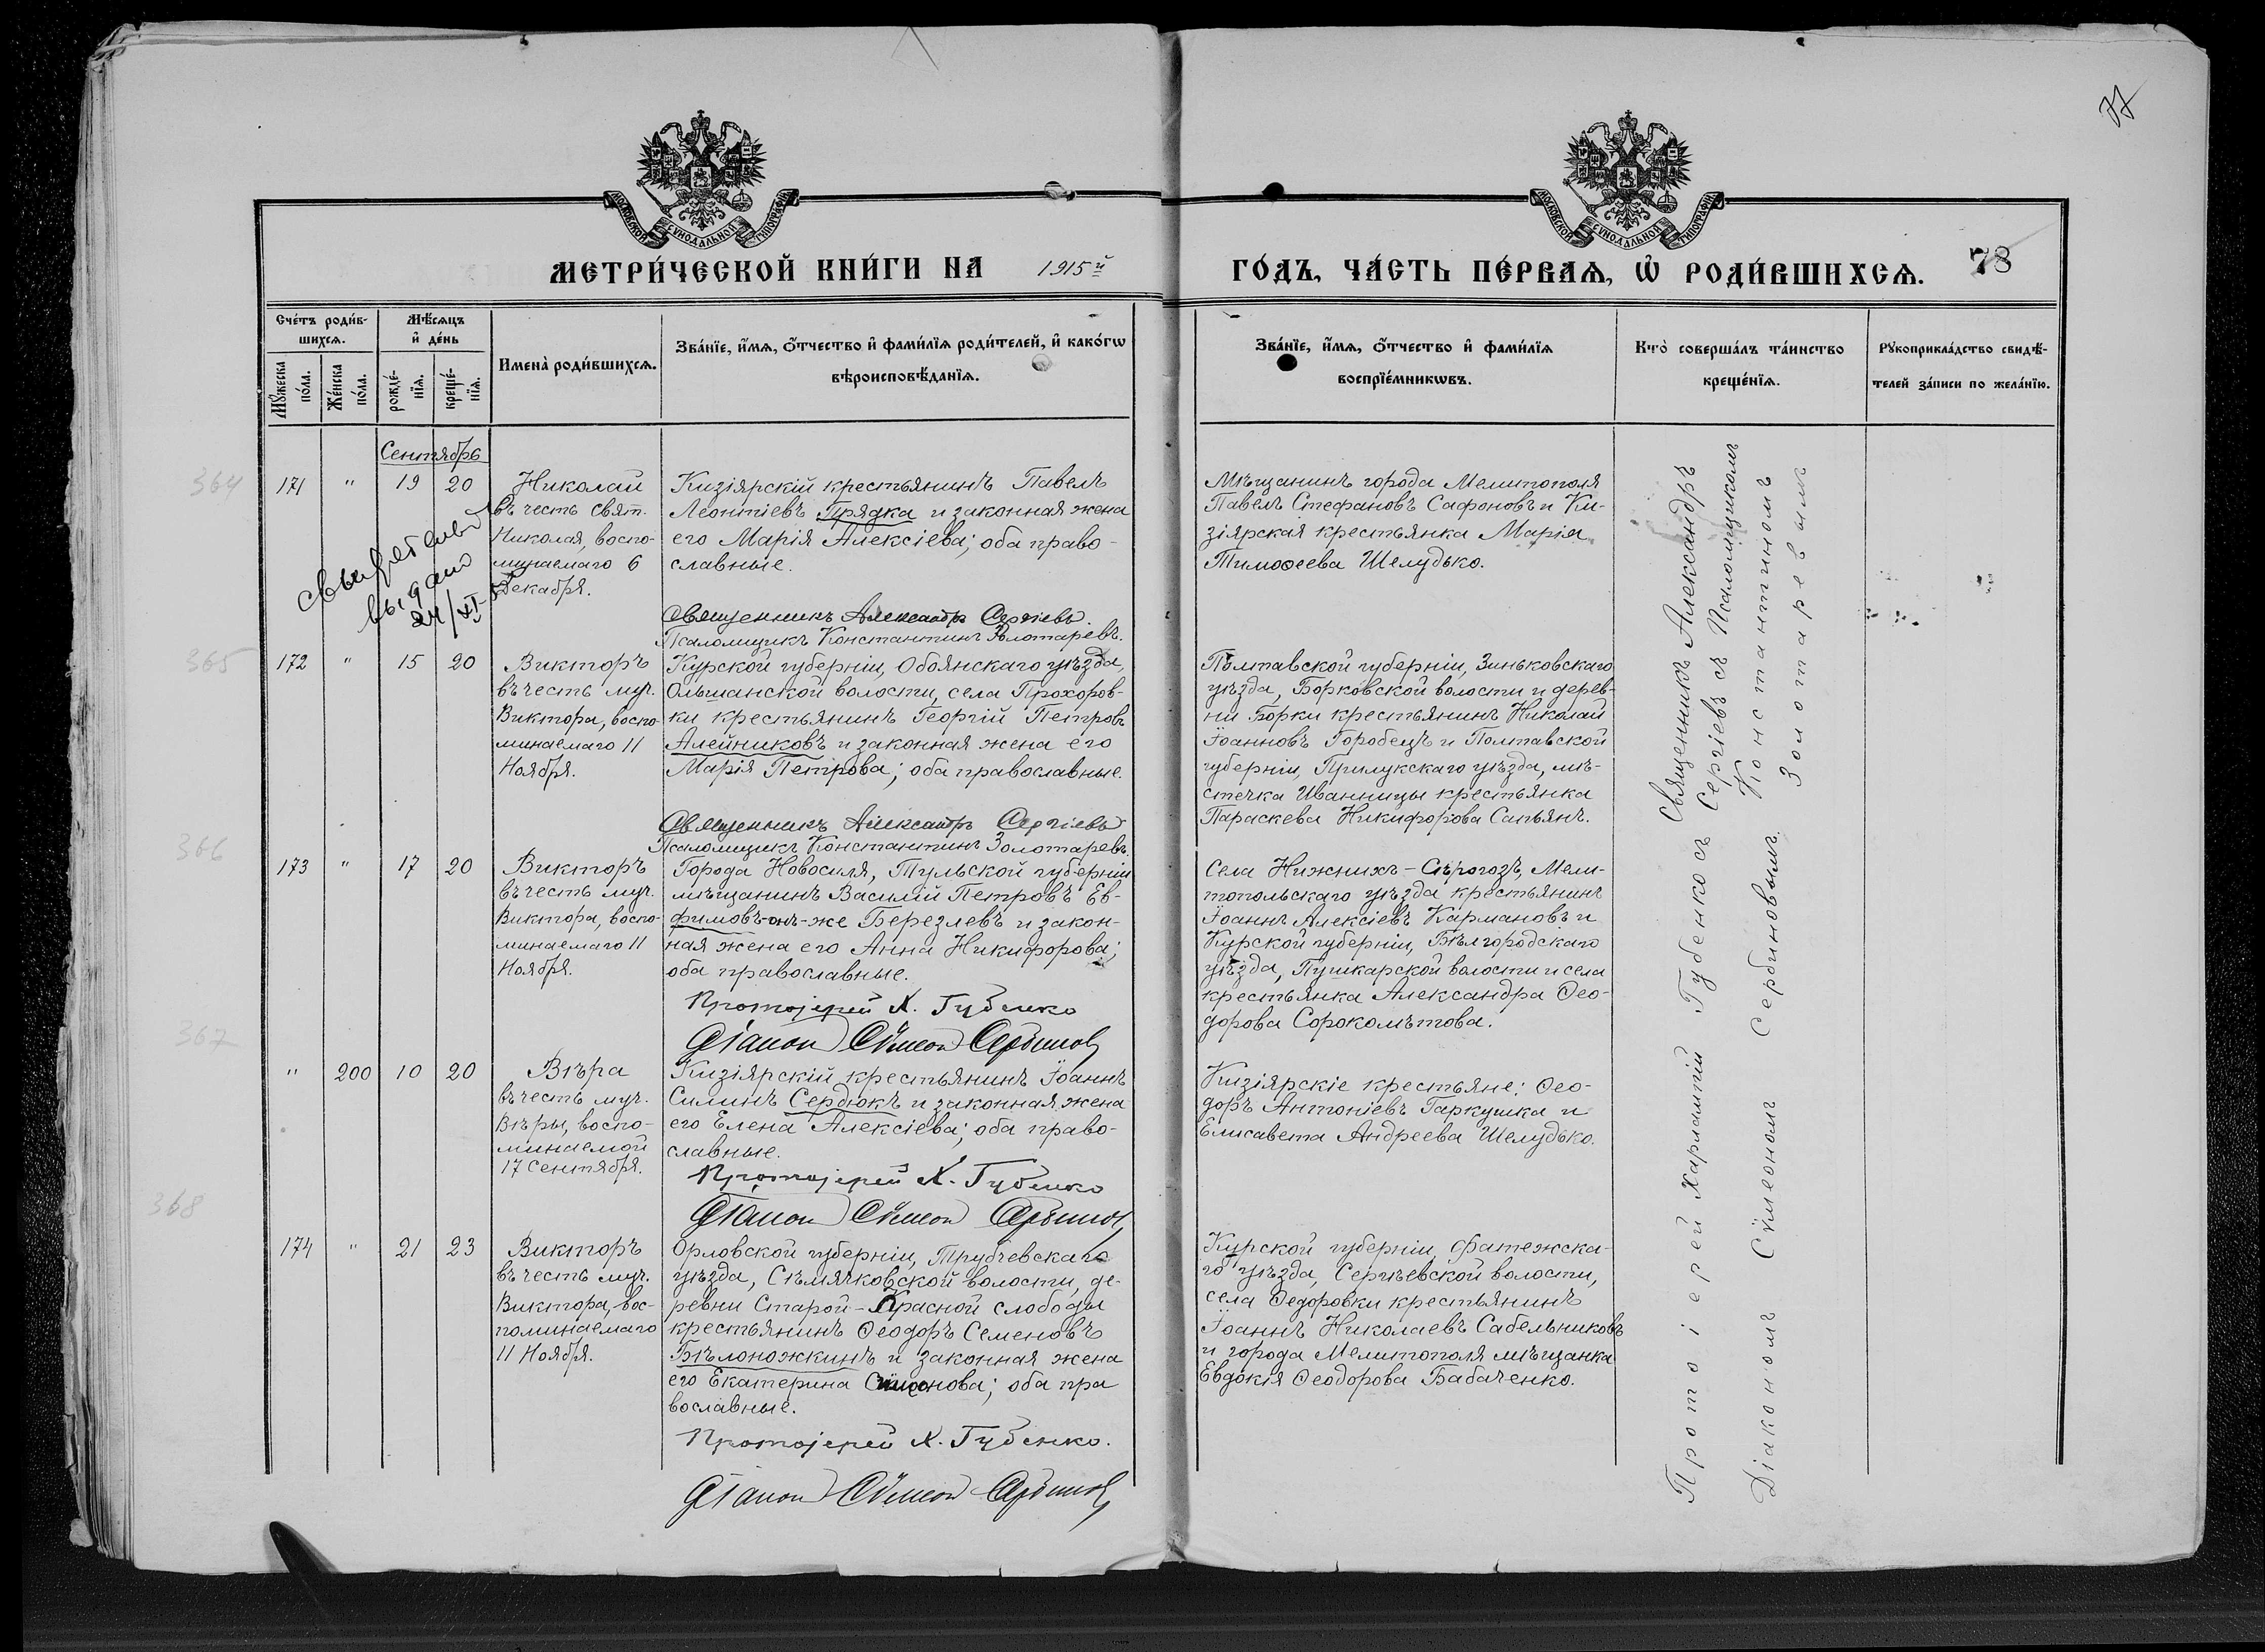 77
МОСКОВСКОЙ СѴНОДАЛЬНОЙ ТИПОГРАФІИ
МОСКОВСКОЙ СѴНОДАЛЬНОЙ ТИПОГРАФІИ
МЕТРИ́ЧЕСКОЙ КНИ́ГИ НА 1915й
ГО́ДЪ, ЧА́СТЬ ПЕ́РВАѦ, Ѡ҆ РОДИ́ВШИХСѦ. 78
Сче́тъ роди́в-
шихсѧ.
Мꙋ́жеска
по́ла.
Же́нска
по́ла.
Мѣ́сѧцъ
и҆ де́нь
рожде́-
нїѧ.
креще́-
нїѧ.
Имена̀ роди́вшихсѧ.
Зва́нїе, и҆́мѧ, ѻ҆́тчество и҆ фами́лїѧ роди́телей, и҆ како́гѡ
вѣроисповѣ́данїѧ.
Зва́нїе, и҆́мѧ, ѻ҆́тчество и҆ фами́лїѧ
воспрїе́мникѡвъ.
Кто̀ соверша́лъ та́инство
креще́нїѧ.
Рꙋкоприкла́дство свидѣ́-
телей за́писи по жела́нїю.
Сентябрь
364
171 " 19 20
Николай
въ честь свят.
Николая, воспо-
минаемаго 6
Декабря.
выдано
24/XI
Кизіярскій крестьянинъ Павелъ
Леонтіевъ Прядка и законная жена
его Марія Алексіева; оба право-
славные.
Священникъ Александръ Сергіевъ.
Псаломщикъ Константинъ Золотаревъ.
Мѣщанинъ города Мелитополя
Павелъ Стефановъ Сафоновъ и Ки-
зіярская крестьянка Марія
Тимоѳеева Шелудько.
365
172 " 15 20
Викторъ
въ честь муч.
Виктора, воспо-
минаемаго 11
Ноября.
Курской губерніи, Обоянскаго уѣзда,
Ольшанской волости, села Прохоров-
ки крестьянинъ Георгій Петровъ
Алейниковъ и законная жена его
Марія Петрова; оба православные.
Священникъ Александръ Сергіевъ
Псаломщикъ Константинъ Золотаревъ.
Полтавской губерніи, Зиньковскаго
уѣзда, Борковской волости и дерев-
ни Борки крестьянинъ Николай
Іоанновъ Горобецъ и Полтавской
губерніи, Прилукскаго уѣзда, мѣ-
стечка Иванницы крестьянка
Параскева Никифорова Сапьянъ.
366
173 " 17 20
Викторъ
въ честь муч.
Виктора, воспо-
минаемаго 11
Ноября.
Города Новосиля, Тульской губерніи
мѣщанинъ Василій Петровъ Ев-
фимовъ-онъ-же Березлевъ и закон-
ная жена его Анна Никифорова;
оба православные.
Протоіерей Х. Губенко
Діаконъ Сѵмеонъ Сербиновъ
Села Нижнихъ-Сѣрогозъ, Мели-
топольскаго уѣзда крестьянинъ
Іоаннъ Алексіевъ Кармановъ и
Курской губерніи, Бѣлгородскаго
уѣзда, Пушкарской волости и села
крестьянка Александра Ѳео-
дорова Сороколѣтова.
367
" 200 10 20
Вѣра
въ честь муч.
Вѣры, воспо-
минаемой
17 Сентября.
Кизіярскій крестьянинъ Іоаннъ
Силинъ Сердюкъ и законная жена
его Елена Алексіева; оба право-
славные.
Протоіерей Х. Губенко
Діаконъ Сѵмеонъ Сербиновъ
Кизіярскіе крестьяне: Ѳео-
доръ Антоніевъ Гаркушка и
Елисавета Андреева Шелудько.
368
174 " 21 23
Викторъ
въ честь муч.
Виктора, вос-
поминаемаго
11 Ноября.
Орловской губерніи, Трубчевскаго
уѣзда, Сѣмячковской волости, де-
ревни Старой-Красной слободы
крестьянинъ Ѳеодоръ Семеновъ
Бѣлоножкинъ и законная жена
его Екатерина Симонова; оба пра
вославные.
Протоіерей Х. Губенко.
Діаконъ Сѵмеонъ Сербиновъ
Курской губерніи, Фатежска-
го уѣзда, Сергѣевской волости,
села Ѳедоровки крестьянинъ
Іоаннъ Николаевъ Сабельниковъ
и города Мелитополя мѣщанка
Евдокія Ѳеодорова Бабаченко.
Священникъ Александръ
Сергіевъ съ Псаломщикомъ
Константиномъ
Золотаревымъ
Протоіерей Харлампій Губенко съ
Діакономъ Сѵмеономъ Сербиновымъ.